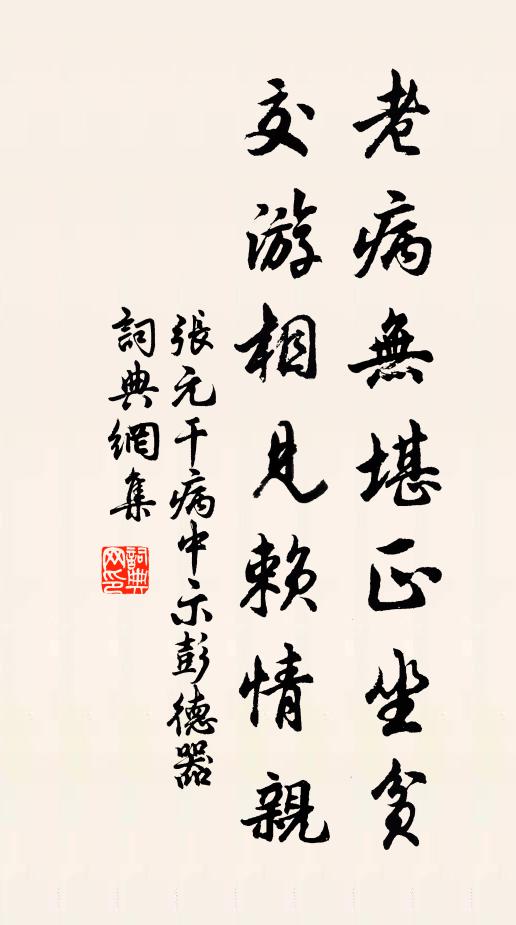 老病無堪正坐貧
交游相見賴情親
張元干病中示彭德器
詞典網集
詞典网印